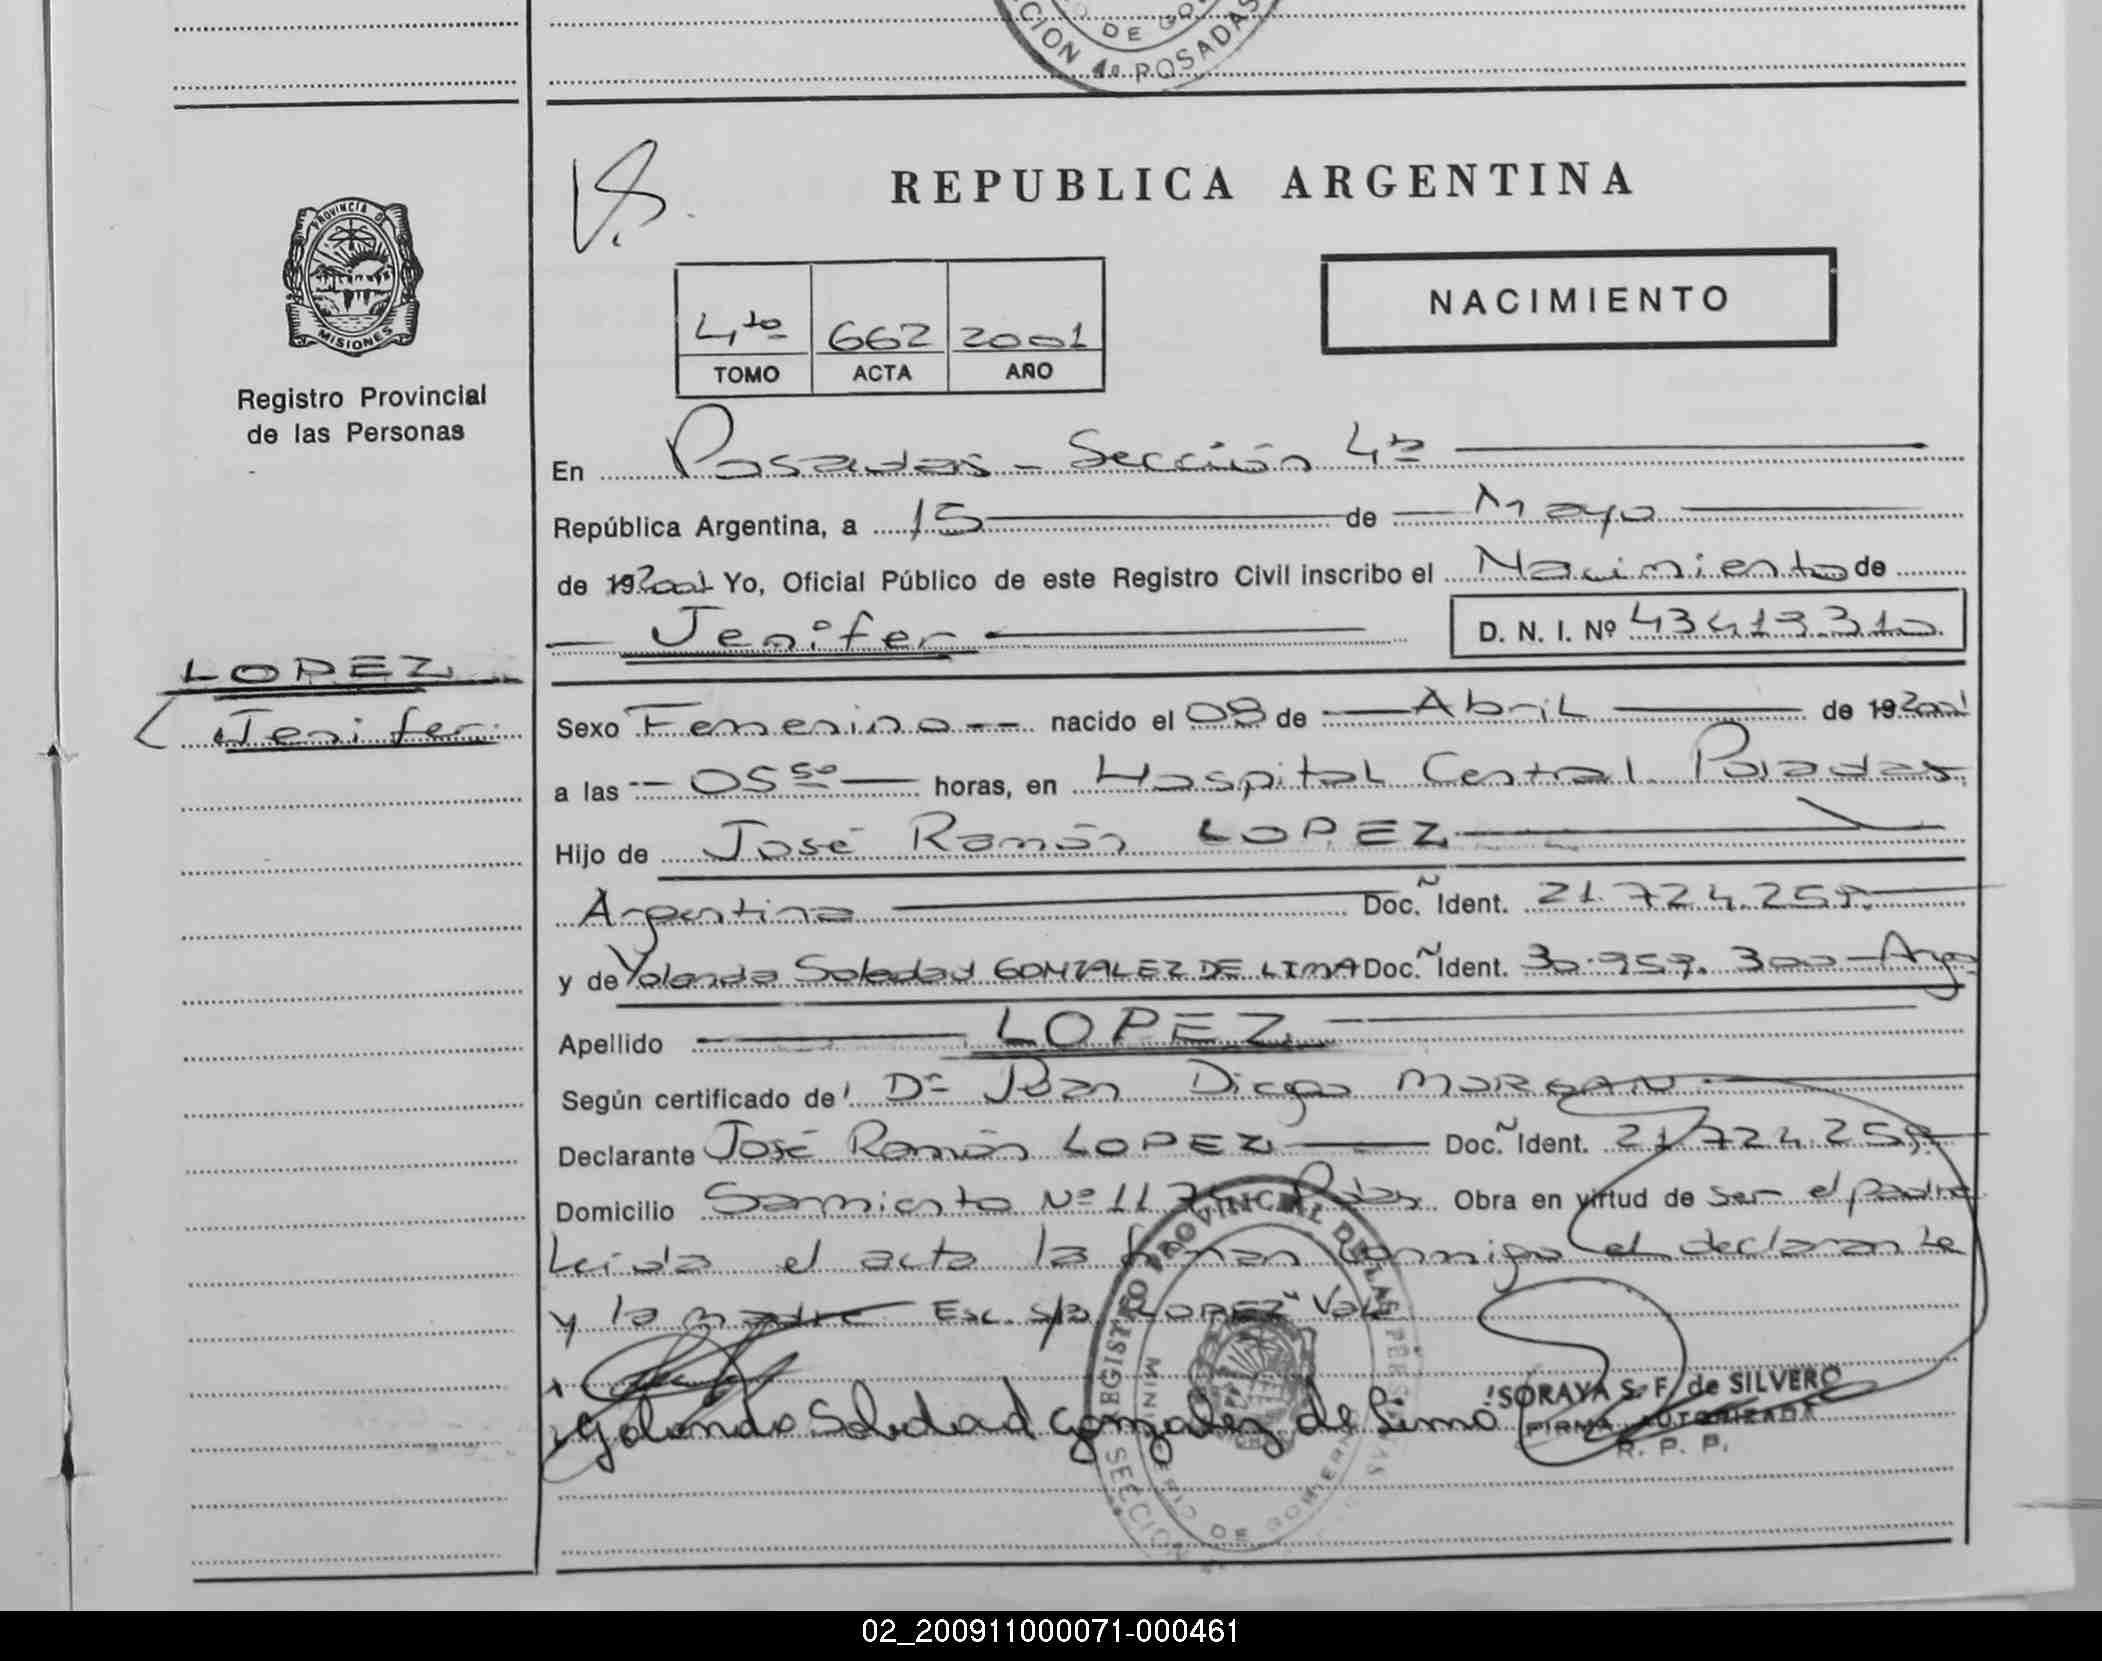 DE GO
CCION 4a POSADAS
REPUBLICA ARGENTINA
PROVINCIA DE
MISIONES
Registro Provincial
de las Personas
4to 662 2001
TOMO ACTA AÑO
NACIMIENTO
En Posadas - Sección 4ª
República Argentina, a 15 de Mayo
de 192001 Yo, Oficial Público de este Registro Civil inscribo el Nacimiento de
Jenifer D. N. I. Nº 43.419.310
LOPEZ
Jenifer
Sexo Femenino nacido el 08 de Abril de 192001
a las 05 50 horas, en Hospital Central Posadas
Hijo de José Ramón LOPEZ
Argentina Doc. Ident. 21.724.259
y de Yolanda Soledad GONZALEZ DE LIMA Doc. Ident. 30.959.300 - Arg
Apellido LOPEZ
Según certificado de Dr Juan Diego MORGAN
Declarante José Ramón LOPEZ Doc. Ident. 21.724.259
Domicilio Sarmiento Nº Pdas. Obra en virtud de ser el padre
Leida el acta la firman conmigo el declarante
y la madre Esc. s/b "LOPEZ" Vale
Yolanda Soledad Gonzalez de Lima
SORAYA S. F. de SILVERO
FIRMA AUTORIZADA
R. P. P.
REGISTRO PROVINCIAL DE LAS PERSONAS
MINISTERIO DE GOBIERNO
SECCION
02_200911000071-000461